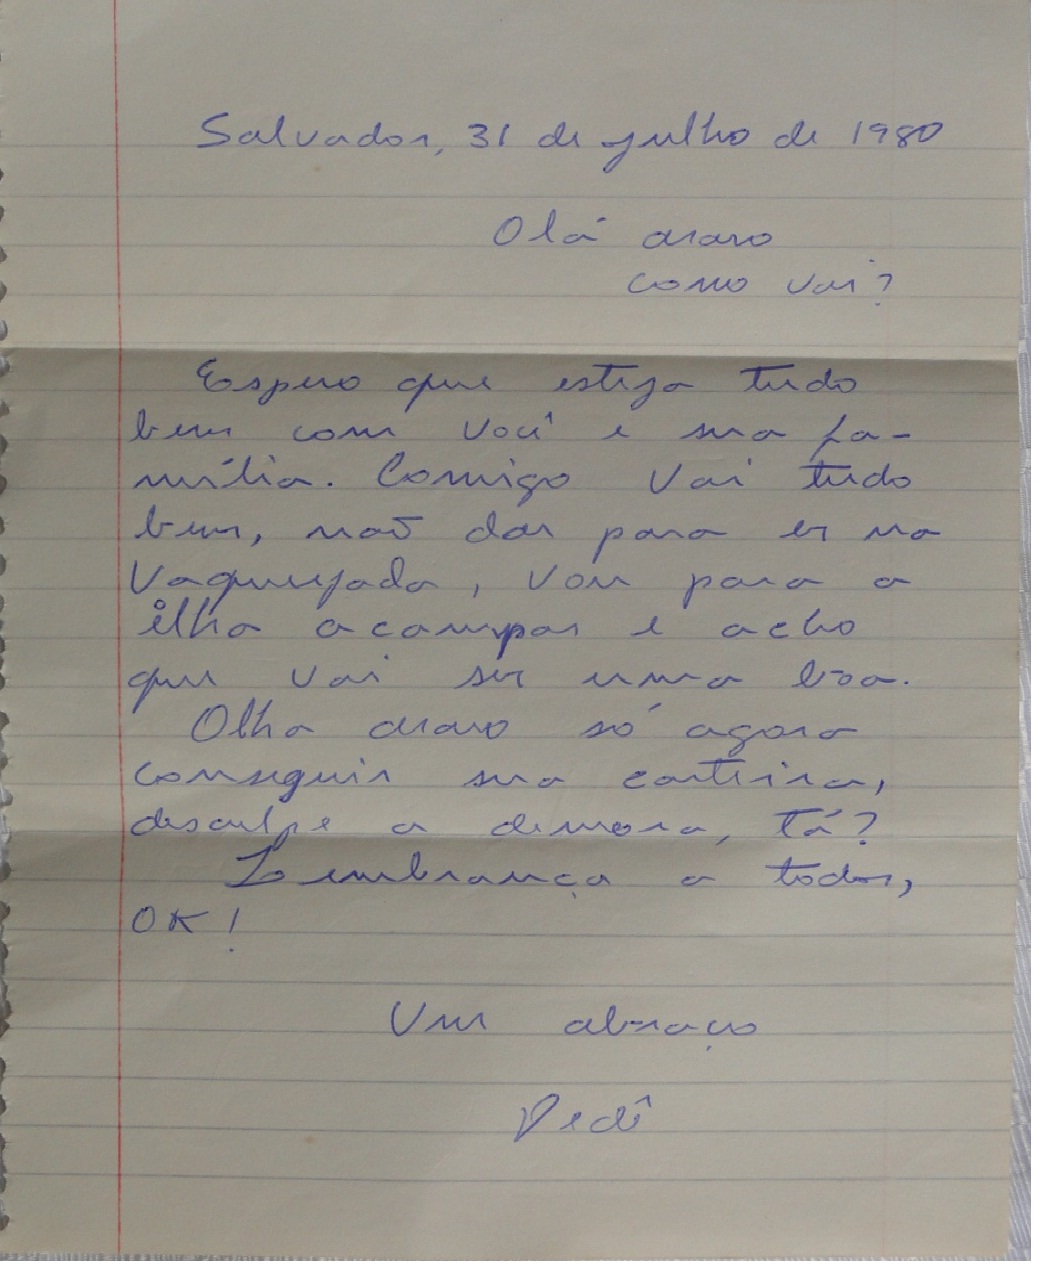 Salvador, 31 de julho de 1980
Olá
como vai?
Espero que esteja tudo
bem com você e sua fa-
mília. Comigo vai tudo
bem, naõ dar para ir na
Vaquejada, vou para a
ilha acampar e acho
que vai ser uma boa.
Olha só agora
conseguir sua carteira,
desculpe a demora, tá?
Lembrança a todos,
OK!
Um abraço
Dedê